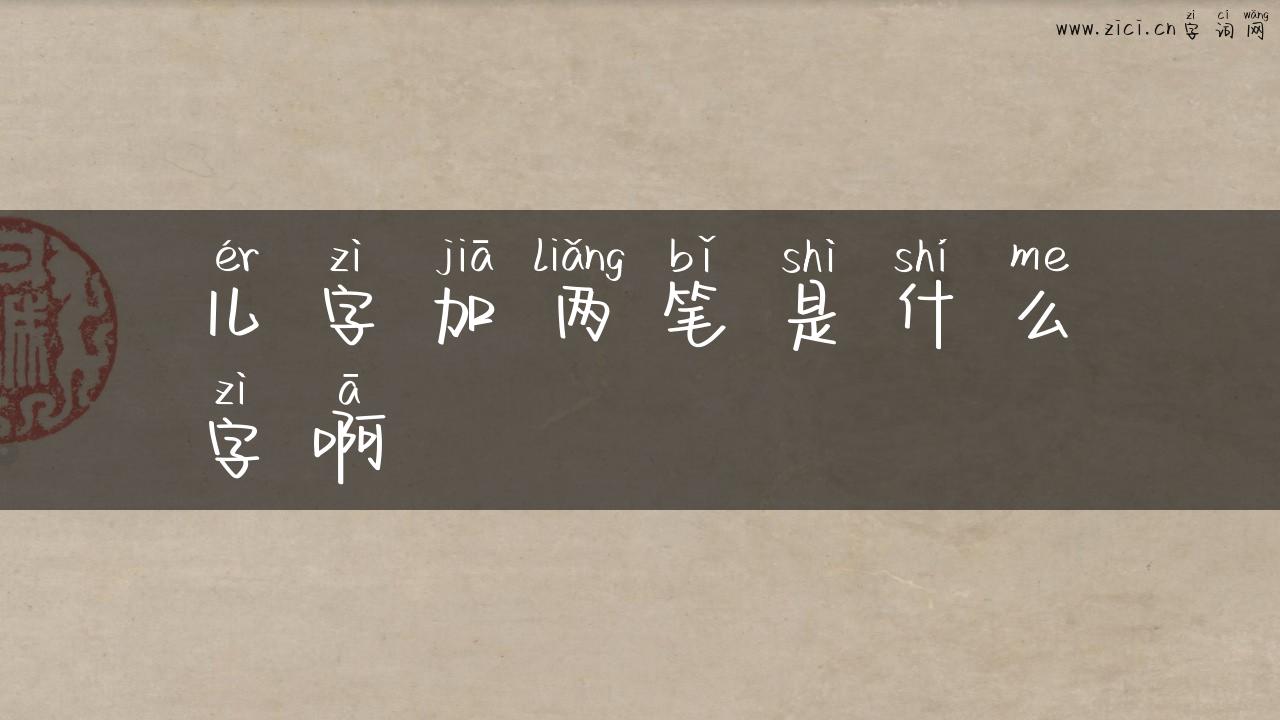 zì cí wǎng
www.zici.cn 字 词 网
ér zì jiā liǎng bǐ shì shí me
儿 字 加 两 笔 是 什 么
zì ā
字 啊